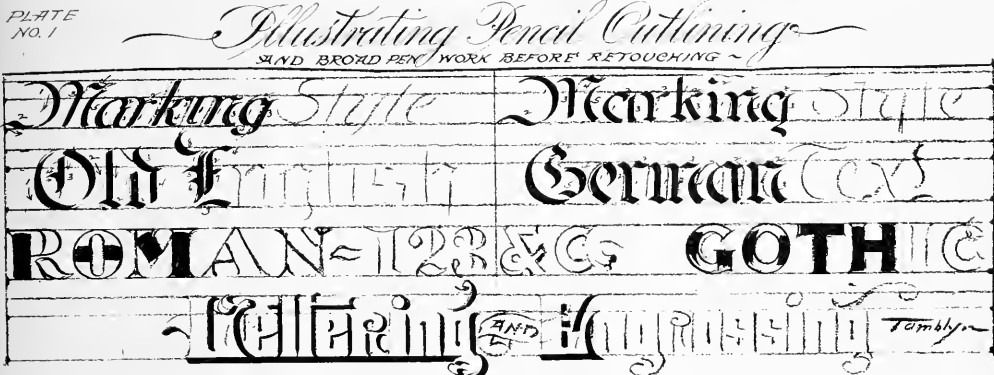 PLATE
NO. 1
Illustrating Pencil Outlining
AND BROAD PEN WORK BEFORE RETOUCHING ~
Marking Style Marking Style
Old English German Text
ROMAN ~ 123 & C GOTHIC
Lettering AND Engrossing Tamblyn